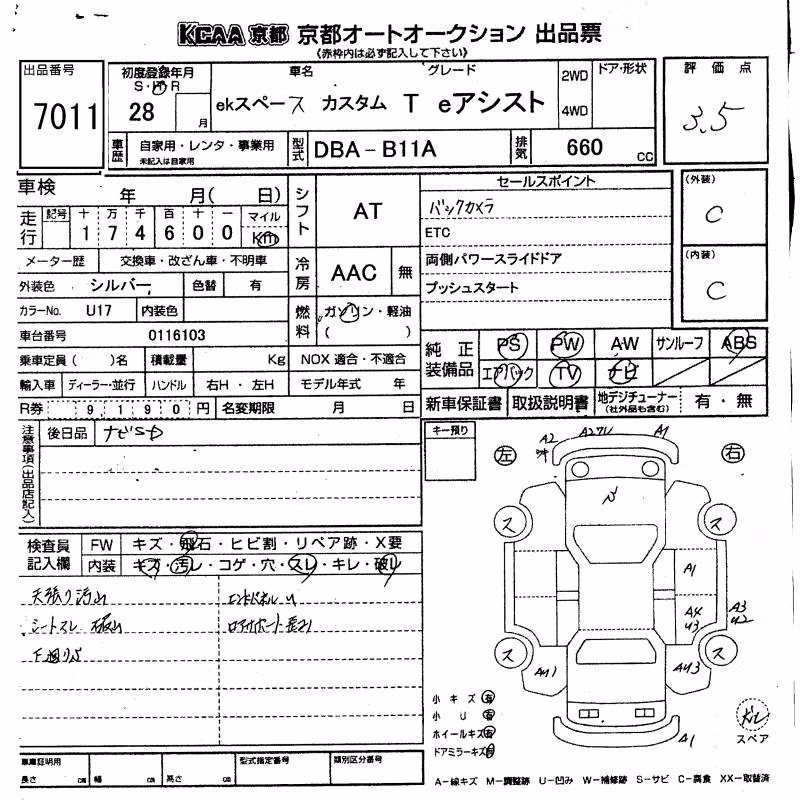 KCAA 京都 京都オートオークション 出品票
《赤枠内は必ず記入して下さい》
出品番号
7011
初度登録年月
S・H・R
28
月
車名
グレード
ekスペース カスタム T eアシスト
2WD
4WD
ドア・形状
評価点
3.5
車歴
自家用・レンタ・事業用
未記入は自家用
型式
DBA-B11A
排気
660
cc
車検 年 月( 日)
走行
記号
十 万 千 百 十 一
1 7 4 6 0 0
マイル
Km
シフト
AT
セールスポイント
バックカメラ
ETC
両側パワースライドドア
プッシュスタート
(外装)
C
(内装)
C
メーター歴 交換車・改ざん車・不明車
冷房
AAC
無
外装色 シルバー 色替 有
カラーNo. U17 内装色
燃料
ガソリン・軽油
( )
車台番号 0116103
乗車定員( )名 積載量 Kg NOX 適合・不適合
輸入車 ディーラー・並行 ハンドル 右H・左H モデル年式 年
R券 9,190円 名変期限 月 日
純正装備品
PS PW AW サンルーフ ABS
エアバック TV ナビ
新車保証書 取扱説明書 地デジチューナー 有・無
(社外品も含む)
注意事項(出品店記入)
後日品
キー預り
左
右
A2
A1
A1
A4
A3
U2
A1
ス
ス
ス
ス
検査員記入欄
FW キズ・飛石・ヒビ割・リペア跡・X要
内装 キズ・汚レ・コゲ・穴・スレ・キレ・破レ
天張り汚れ
シートスレ 破れ
小キズ 有
小U 有
ホイールキズ 有
ドアミラーキズ 有
スペア
車庫証明用
長さ cm 幅 cm 高さ cm
型式指定番号
類別区分番号
A-線キズ M-調整跡 U-凹み W-補修跡 S-サビ C-腐食 XX-取替済